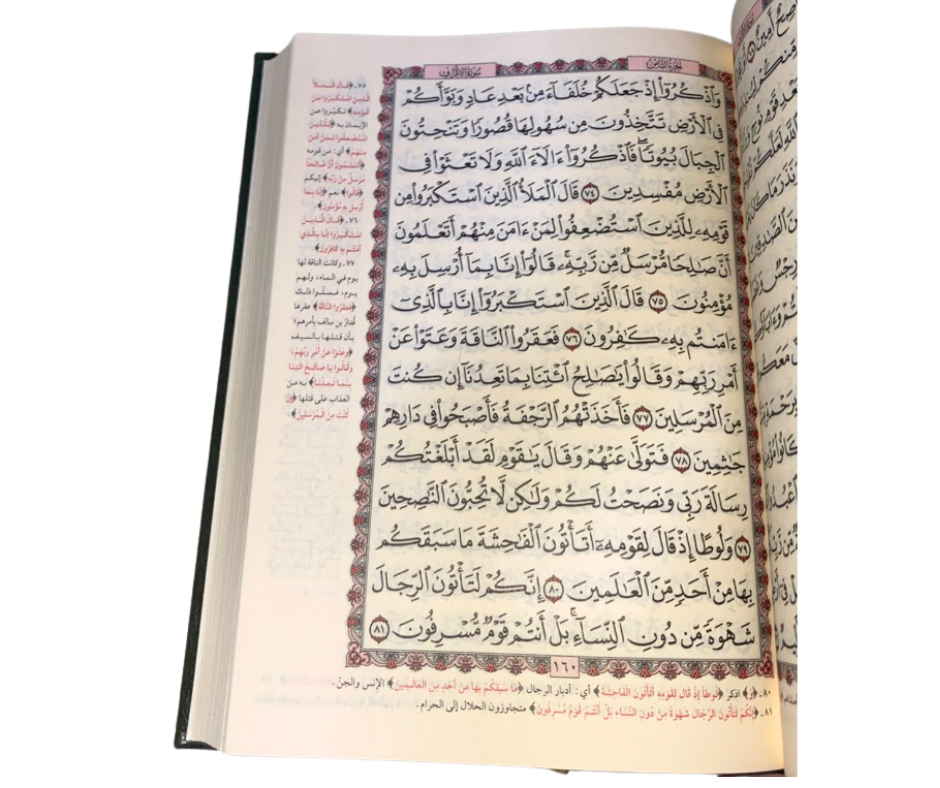 الجزء الثامن
سورة الأعراف
وَٱذْكُرُوٓا۟ إِذْ جَعَلَكُمْ خُلَفَآءَ مِنۢ بَعْدِ عَادٍ وَبَوَّأَكُمْ
فِى ٱلْأَرْضِ تَتَّخِذُونَ مِن سُهُولِهَا قُصُورًا وَتَنْحِتُونَ
ٱلْجِبَالَ بُيُوتًا ۖ فَٱذْكُرُوٓا۟ ءَالَآءَ ٱللَّهِ وَلَا تَعْثَوْا۟ فِى
ٱلْأَرْضِ مُفْسِدِينَ ٧٤ قَالَ ٱلْمَلَأُ ٱلَّذِينَ ٱسْتَكْبَرُوا۟ مِن
قَوْمِهِۦ لِلَّذِينَ ٱسْتُضْعِفُوا۟ لِمَنْ ءَامَنَ مِنْهُمْ أَتَعْلَمُونَ
أَنَّ صَٰلِحًا مُّرْسَلٌ مِّن رَّبِّهِۦ ۚ قَالُوٓا۟ إِنَّا بِمَآ أُرْسِلَ بِهِۦ
مُؤْمِنُونَ ٧٥ قَالَ ٱلَّذِينَ ٱسْتَكْبَرُوٓا۟ إِنَّا بِٱلَّذِىٓ
ءَامَنتُم بِهِۦ كَٰفِرُونَ ٧٦ فَعَقَرُوا۟ ٱلنَّاقَةَ وَعَتَوْا۟ عَنْ
أَمْرِ رَبِّهِمْ وَقَالُوا۟ يَٰصَٰلِحُ ٱئْتِنَا بِمَا تَعِدُنَآ إِن كُنتَ
مِنَ ٱلْمُرْسَلِينَ ٧٧ فَأَخَذَتْهُمُ ٱلرَّجْفَةُ فَأَصْبَحُوا۟ فِى دَارِهِمْ
جَٰثِمِينَ ٧٨ فَتَوَلَّىٰ عَنْهُمْ وَقَالَ يَٰقَوْمِ لَقَدْ أَبْلَغْتُكُمْ
رِسَالَةَ رَبِّى وَنَصَحْتُ لَكُمْ وَلَٰكِن لَّا تُحِبُّونَ ٱلنَّٰصِحِينَ
٧٩ وَلُوطًا إِذْ قَالَ لِقَوْمِهِۦٓ أَتَأْتُونَ ٱلْفَٰحِشَةَ مَا سَبَقَكُم
بِهَا مِنْ أَحَدٍ مِّنَ ٱلْعَٰلَمِينَ ٨٠ إِنَّكُمْ لَتَأْتُونَ ٱلرِّجَالَ
شَهْوَةً مِّن دُونِ ٱلنِّسَآءِ ۚ بَلْ أَنتُمْ قَوْمٌ مُّسْرِفُونَ ٨١
١٦٠
٧٥ - ﴿قَالَ الْمَلَأُ
الَّذِينَ اسْتَكْبَرُوا مِن
قَوْمِهِ﴾ تكبّروا عن
الإيمان به ﴿لِلَّذِينَ
اسْتُضْعِفُوا لِمَنْ آمَنَ
مِنْهُمْ﴾ أي: من قومه
﴿أَتَعْلَمُونَ أَنَّ صَالِحًا
مُرْسَلٌ مِنْ رَبِّهِ﴾ إليكم
﴿قَالُوا﴾ نعم ﴿إِنَّا بِمَا
أُرْسِلَ بِهِ مُؤْمِنُونَ﴾.
٧٦ - ﴿قَالَ الَّذِينَ
اسْتَكْبَرُوا إِنَّا بِالَّذِي
آمَنْتُمْ بِهِ كَافِرُونَ﴾.
٧٧ - وكانت الناقة لها
يوم في الماء، ولهم
يوم، فملّوا ذلك
﴿فَعَقَرُوا النَّاقَةَ﴾ عقرها
قُدار بن سالف بأمرهم؛
بأن قتلها بالسيف
﴿وَعَتَوْا عَنْ أَمْرِ رَبِّهِمْ،
وَقَالُوا يَا صَالِحُ ائْتِنَا
بِمَا تَعِدُنَا﴾ به من
العذاب على قتلها ﴿إِنْ
كُنْتَ مِنَ الْمُرْسَلِينَ﴾.
٨٠ - ﴿وَ﴾ اذكر ﴿لُوطًا إِذْ قَالَ لِقَوْمِهِ أَتَأْتُونَ الْفَاحِشَةَ﴾ أي: أدبار الرجال ﴿مَا سَبَقَكُمْ بِهَا مِنْ أَحَدٍ مِنَ الْعَالَمِينَ﴾ الإنس والجنّ.
٨١ - ﴿إِنَّكُمْ لَتَأْتُونَ الرِّجَالَ شَهْوَةً مِنْ دُونِ النِّسَاءِ بَلْ أَنْتُمْ قَوْمٌ مُسْرِفُونَ﴾ متجاوزون الحلال إلى الحرام.